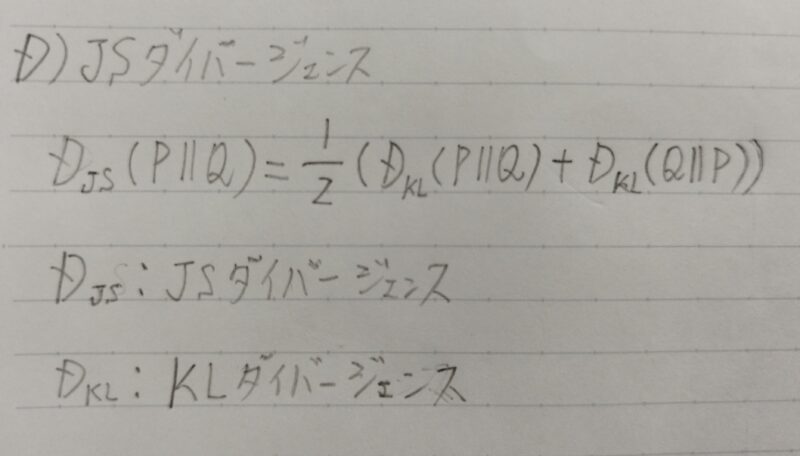 D) JSダイバージェンス
D_JS(P||Q) = 1/2 (D_KL(P||Q) + D_KL(Q||P))
D_JS : JSダイバージェンス
D_KL : KLダイバージェンス